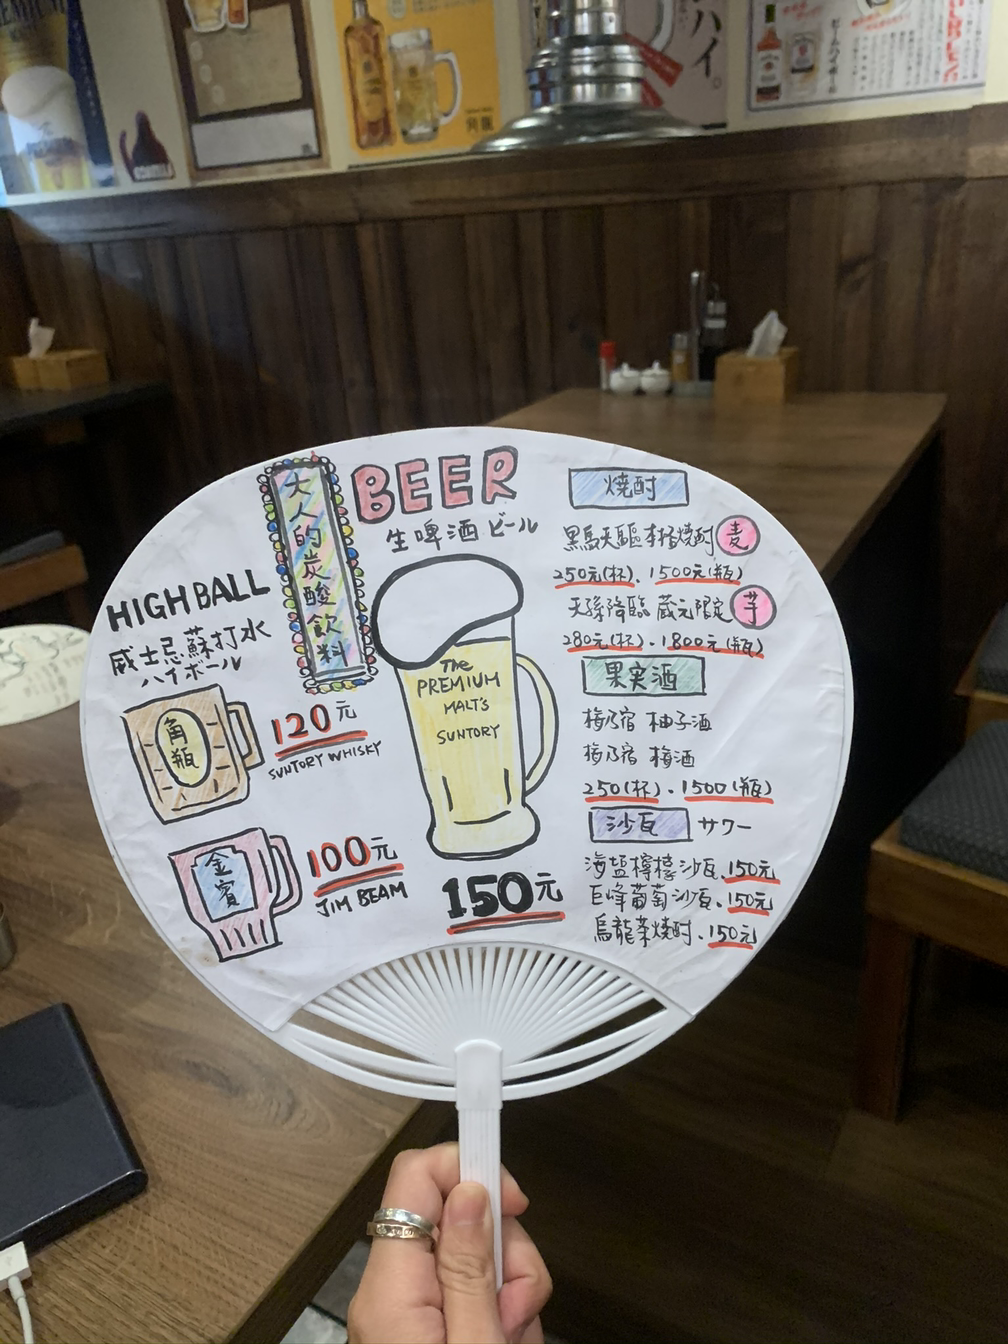 角瓶
ハイ。
大人的炭酸飲料
BEER
生啤酒 ビール
HIGHBALL
威士忌蘇打水
ハイボール
角瓶
120元
SUNTORY WHISKY
金賓
100元
JIM BEAM
The
PREMIUM
MALT'S
SUNTORY
150元
焼酎
黒馬天驅 本格焼酎 麦
250元(杯)、1500元(瓶)
天孫降臨 蔵元限定 芋
280元(杯)、1800元(瓶)
果実酒
梅乃宿 柚子酒
梅乃宿 梅酒
250(杯)、1500(瓶)
沙瓦 サワー
海盐檸檬沙瓦.150元
巨峰葡萄沙瓦.150元
烏龍茶焼酎.150元